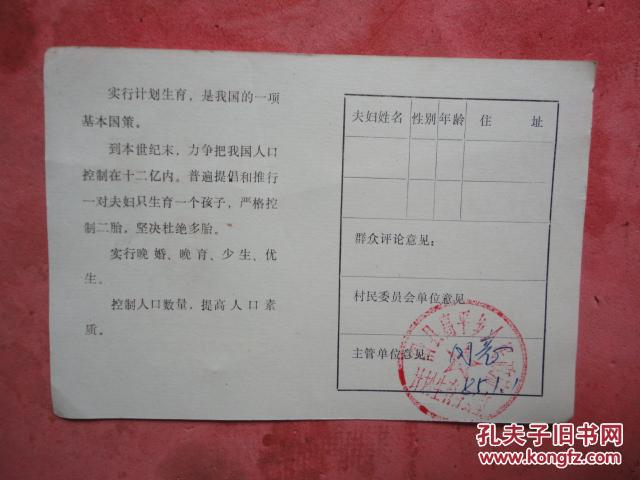 实行计划生育，是我国的一项
基本国策。
到本世纪末，力争把我国人口
控制在十二亿内。普遍提倡和推行
一对夫妇只生育一个孩子，严格控
制二胎，坚决杜绝多胎。
实行晚婚、晚育、少生、优
生。
控制人口数量，提高人口素
质。
夫妇姓名 性别 年龄 住 址
群众评论意见：
村民委员会单位意见
主管单位意见：
同意
85.1.1
孔夫子旧书网
www.kongfz.com